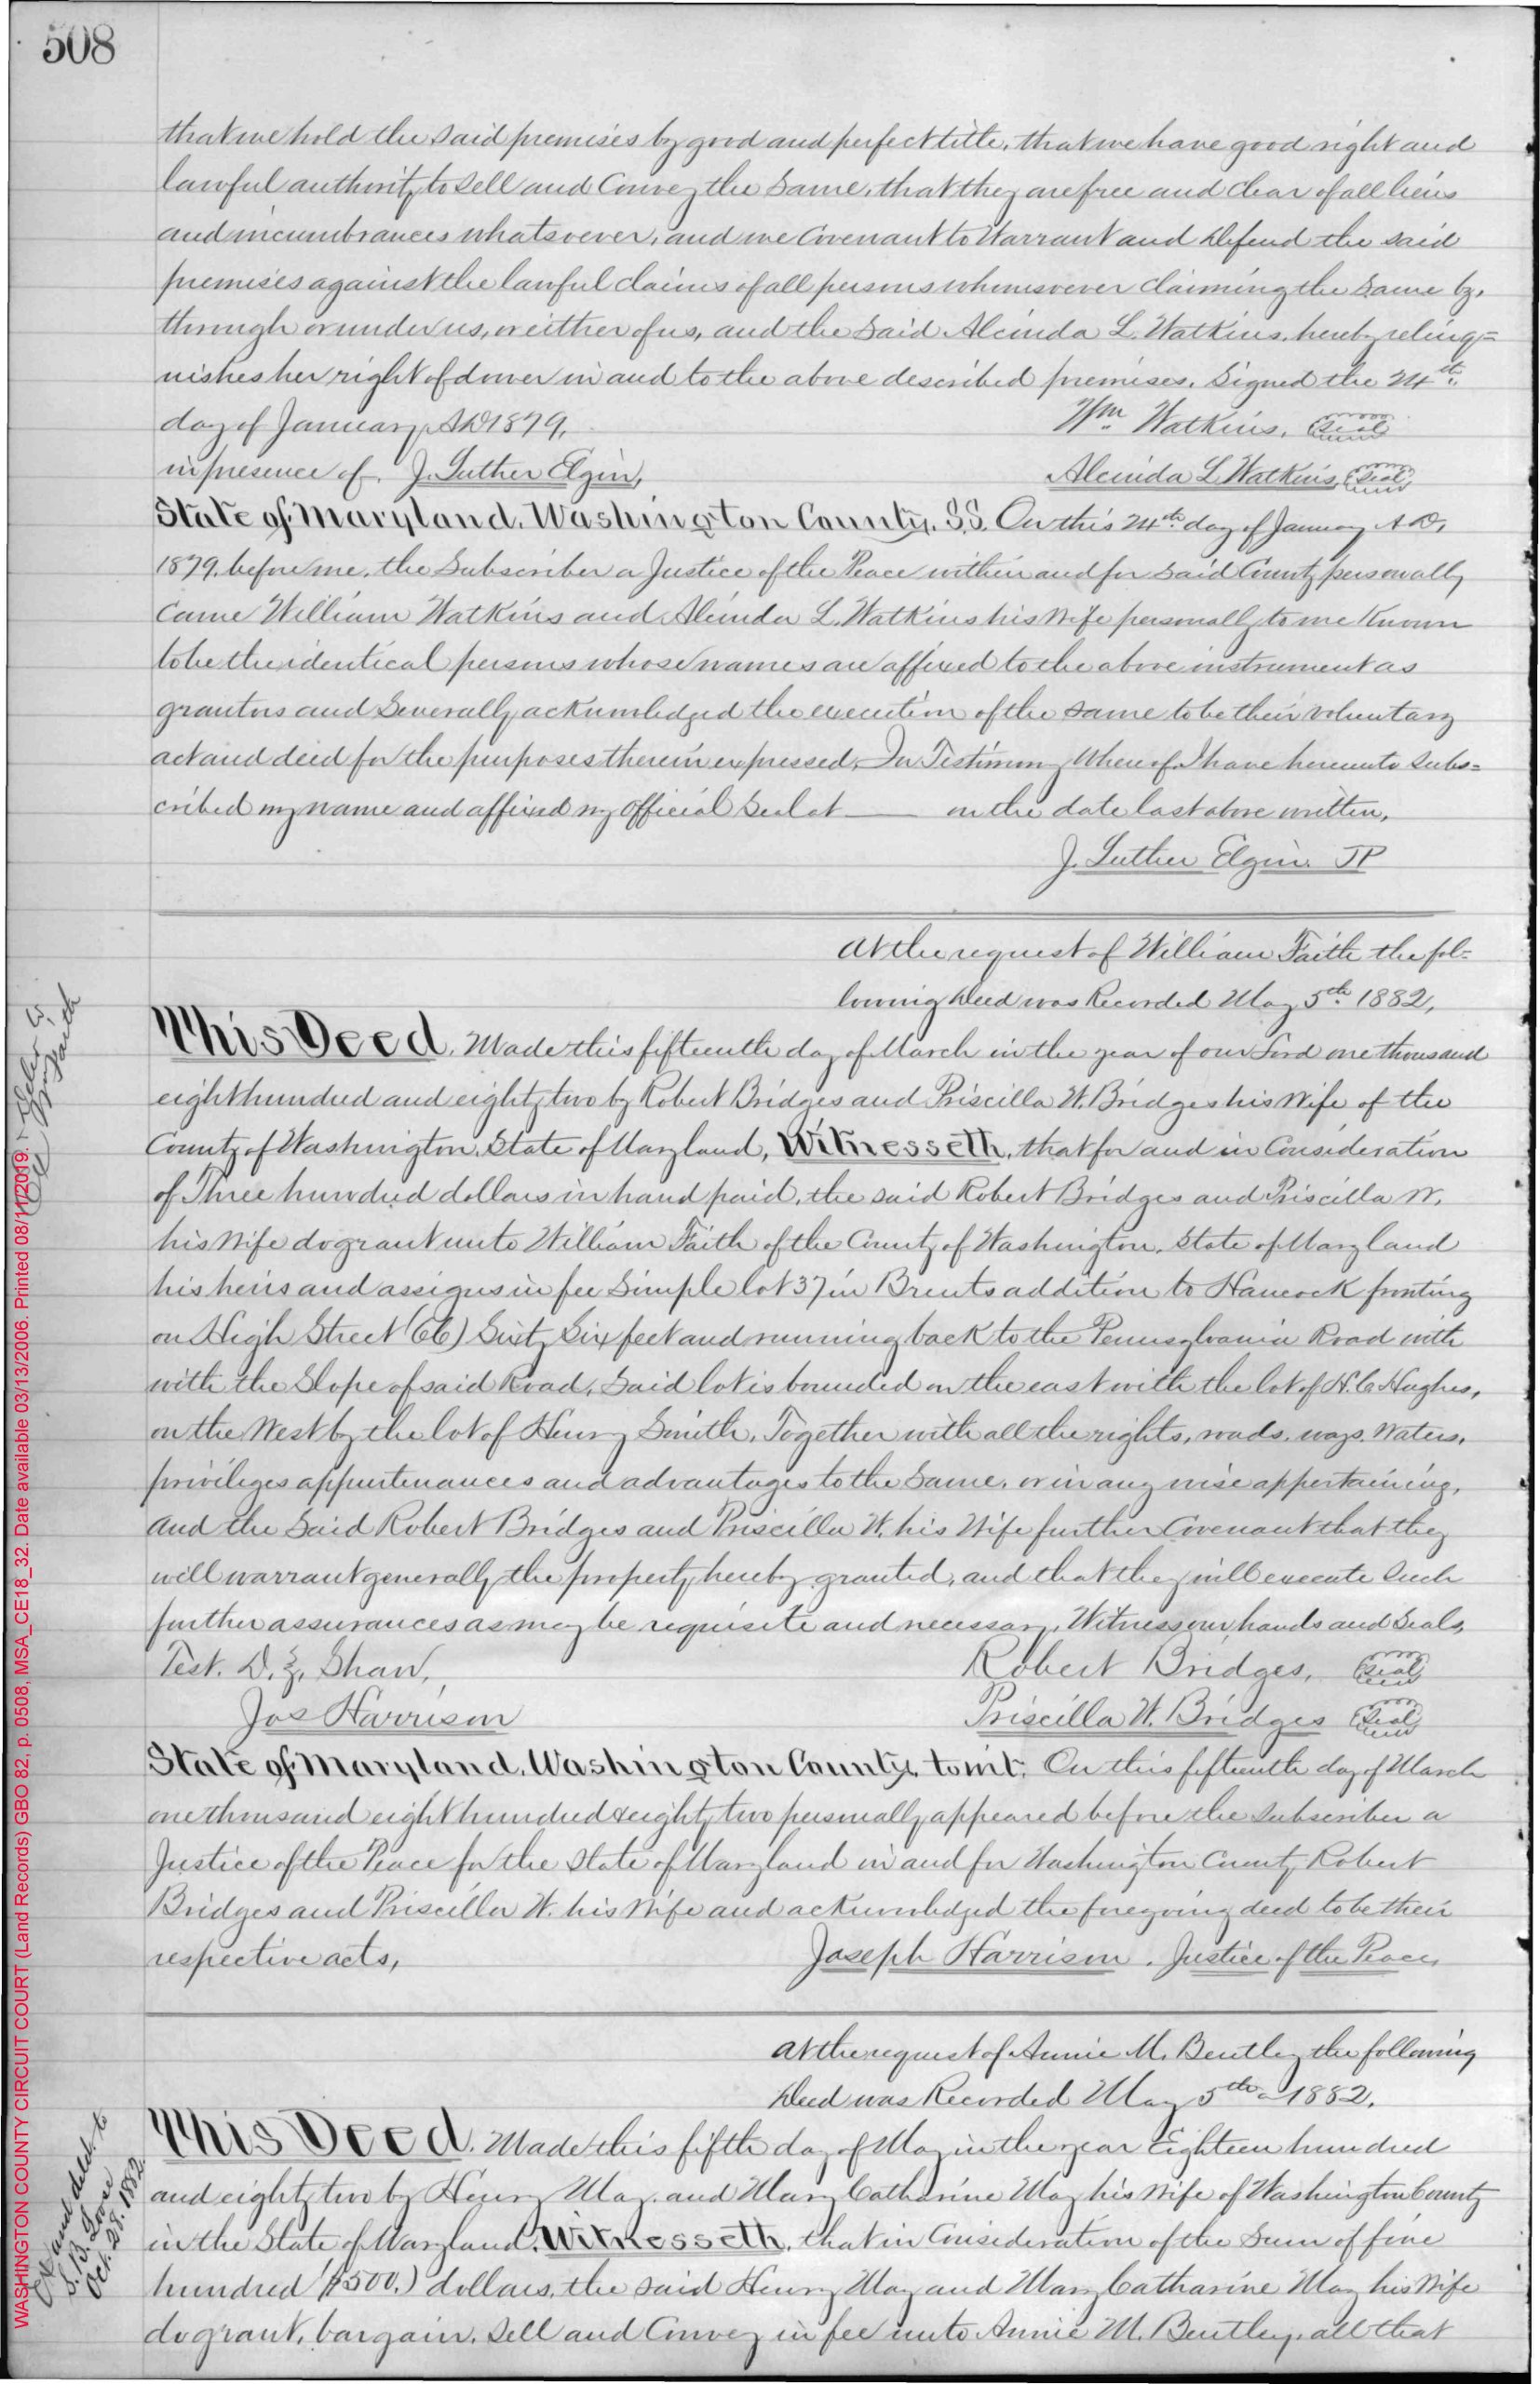 508
that we hold the said premises by good and perfect title, that we have good right and
lawful authority to sell and Convey the Same, that they are free and clear of all liens
and incumbrances whatsoever, and we Covenant to Warrant and defend the said
premises against the lawful claims of all persons whomsoever claiming the Same by,
through or under us, or either of us, and the Said Alcinda L. Watkins, hereby relinq=
uishes her right of dower in and to the above described premises. Signed the 24th
day of January AD 1879,
Wm Watkins, (Seal)
in presence of. J. Luther Elgin,
Alcinda L Watkins (Seal)
State of Maryland, Washington County, S.S. On this 24th day of January A.D,
1879, before me, the Subscriber a Justice of the Peace within and for Said County personally
Came William Watkins and Alcinda L. Watkins his Wife personally to me Known
to be the identical persons whose names are affixed to the above instrument as
grantors and Severally acknowledged the execution of the same to be their voluntary
act and deed for the purposes therein expressed, In Testimony Whereof I have hereunto subs=
cribed my name and affixed my official Seal at —— on the date last above written,
J. Luther Elgin. JP
At the request of William Faith the fol=
lowing Deed was Recorded May 5th 1882,
This Deed, Made this fifteenth day of March in the year of our Lord one thousand
eight hundred and eighty two by Robert Bridges and Priscilla W. Bridges his Wife of the
County of Washington, State of Maryland, Witnesseth, that for and in Consideration
of Three hundred dollars in hand paid, the said Robert Bridges and Priscilla W.
his Wife do grant unto William Faith of the County of Washington, State of Maryland
his heirs and assigns in fee Simple lot 37 in Brents addition to Hancock fronting
on High Street (66) Sixty Six feet and running back to the Pennsylvania Road with
with the Slope of said Road, Said lot is bounded on the east with the lot of H. C Hughes,
on the West by the lot of Henry Smith, Together with all the rights, roads, ways, Waters,
privileges appurtenances and advantages to the Same, or in any wise appertaining,
And the Said Robert Bridges and Priscilla W. his Wife further Covenant that they
will warrant generally the property hereby granted, and that they will execute Such
further assurances as may be requisite and necessary, Witness our hands and Seals,
Test. D. Z. Shaw,
Robert Bridges, (Seal)
Jos Harrison
Priscilla W. Bridges (Seal)
State of Maryland, Washington County, to wit: On this fifteenth day of March
one thousand eight hundred & eighty two personally appeared before the Subscriber a
Justice of the Peace for the State of Maryland in and for Washington County Robert
Bridges and Priscilla W. his Wife and acknowledged the foregoing deed to be their
respective acts,
Joseph Harrison. Justice of the Peace,
At the request of Annie M. Bentley the following
Deed was Recorded May 5th 1882.
This Deed. Made this fifth day of May in the year Eighteen hundred
and eighty two by Henry May and Mary Catharine May his Wife of Washington County
in the State of Maryland. Witnesseth, that in Consideration of the Sum of five
hundred ($500.) dollars, the said Henry May and Mary Catharine May his Wife
do grant, bargain, Sell and Convey in fee unto Annie M. Bentley, all that
Wm Faith
Ex and deld. to
Oct. 28. 1882
WASHINGTON COUNTY CIRCUIT COURT (Land Records) GBO 82, p. 0508, MSA_CE18_32. Date available 03/13/2006. Printed 08/11/2019.